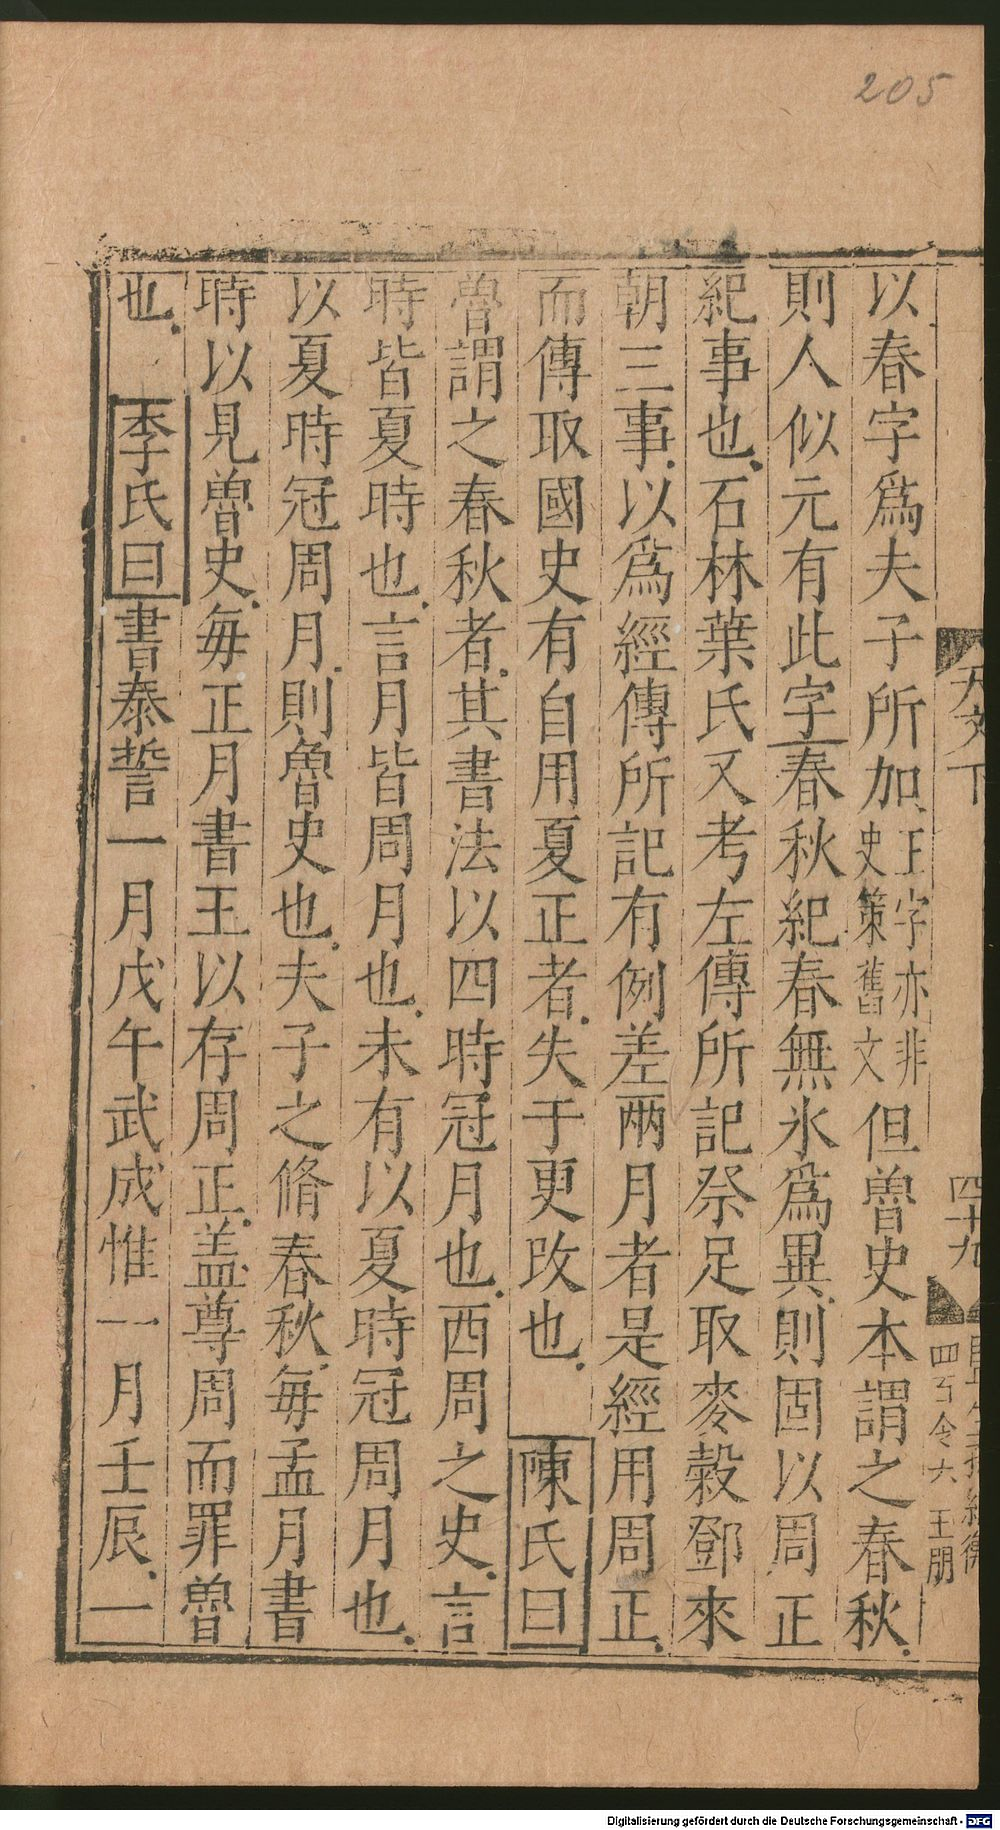 205
天文下
四十九
四百令六 王朋
以春字爲夫子所加王字亦非史策舊文但魯史本謂之春秋
則人似元有此字春秋紀春無氷爲異則固以周正
紀事也石林葉氏又考左傳所記祭足取麥穀鄧來
朝三事以爲經傳所記有例差兩月者是經用周正
而傳取國史有自用夏正者失于更改也 陳氏曰
魯謂之春秋者其書法以四時冠月也西周之史言
時皆夏時也言月皆周月也未有以夏時冠周月也
以夏時冠周月則魯史也夫子之脩春秋每孟月書
時以見魯史每正月書王以存周正盖尊周而罪魯
也 李氏曰書泰誓一月戊午武成惟一月壬辰一
Digitalisierung gefördert durch die Deutsche Forschungsgemeinschaft - DFG